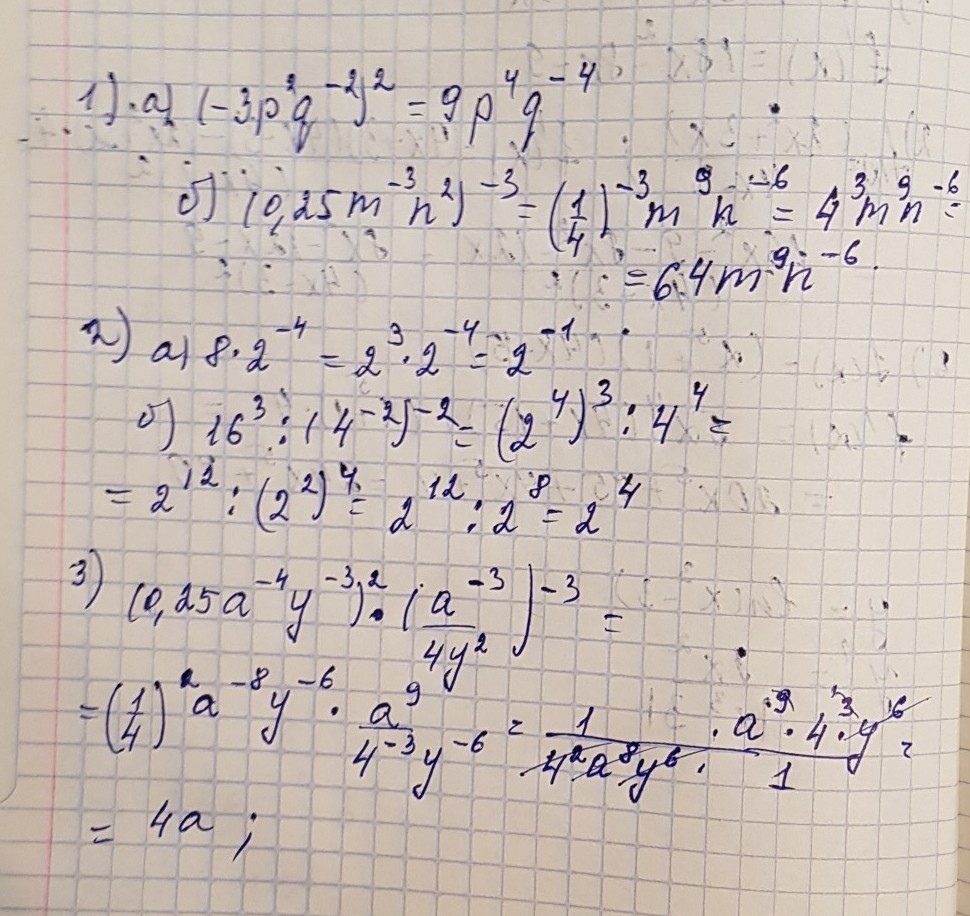 1) а) (-3p²q⁻²)² = 9p⁴q⁻⁴
б) (0,25m⁻³n²)⁻³ = (1/4)⁻³m⁹n⁻⁶ = 4³m⁹n⁻⁶ =
= 64m⁹n⁻⁶.
2) а) 8·2⁻⁴ = 2³·2⁻⁴ = 2⁻¹
б) 16³ : (4⁻²)⁻² = (2⁴)³ : 4⁴ =
= 2¹² : (2²)⁴ = 2¹² : 2⁸ = 2⁴
3) (0,25a⁻⁴y⁻³)² · (a⁻³/4y²)⁻³ =
= (1/4)²a⁻⁸y⁻⁶ · a⁹/4⁻³y⁻⁶ = 1/4²a⁸y⁶ · a⁹·4³·y⁶/1 =
= 4a ;